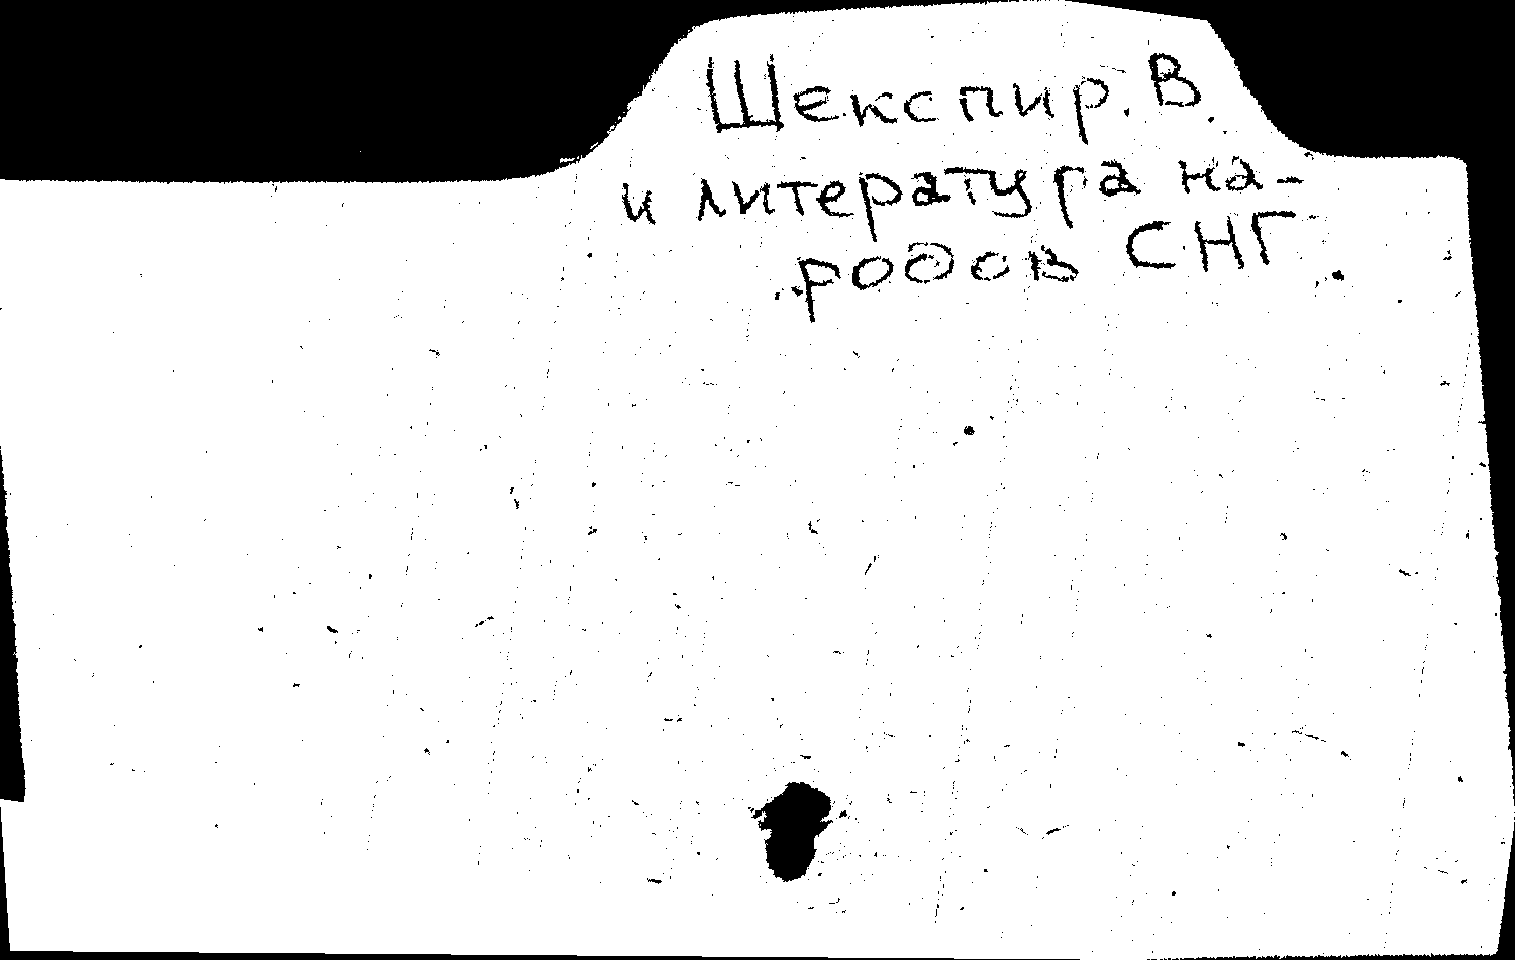 Шекспир. В.
и литература на-
родов СНГ